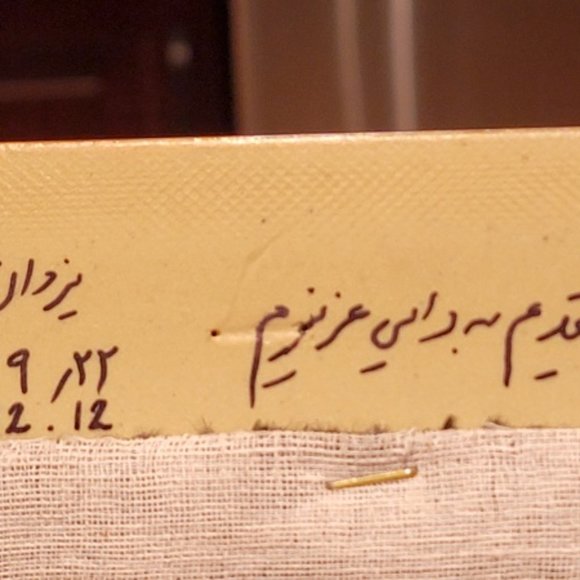 قدیم به دایی عزیزم
یزدان
۲۲/۹
2.12